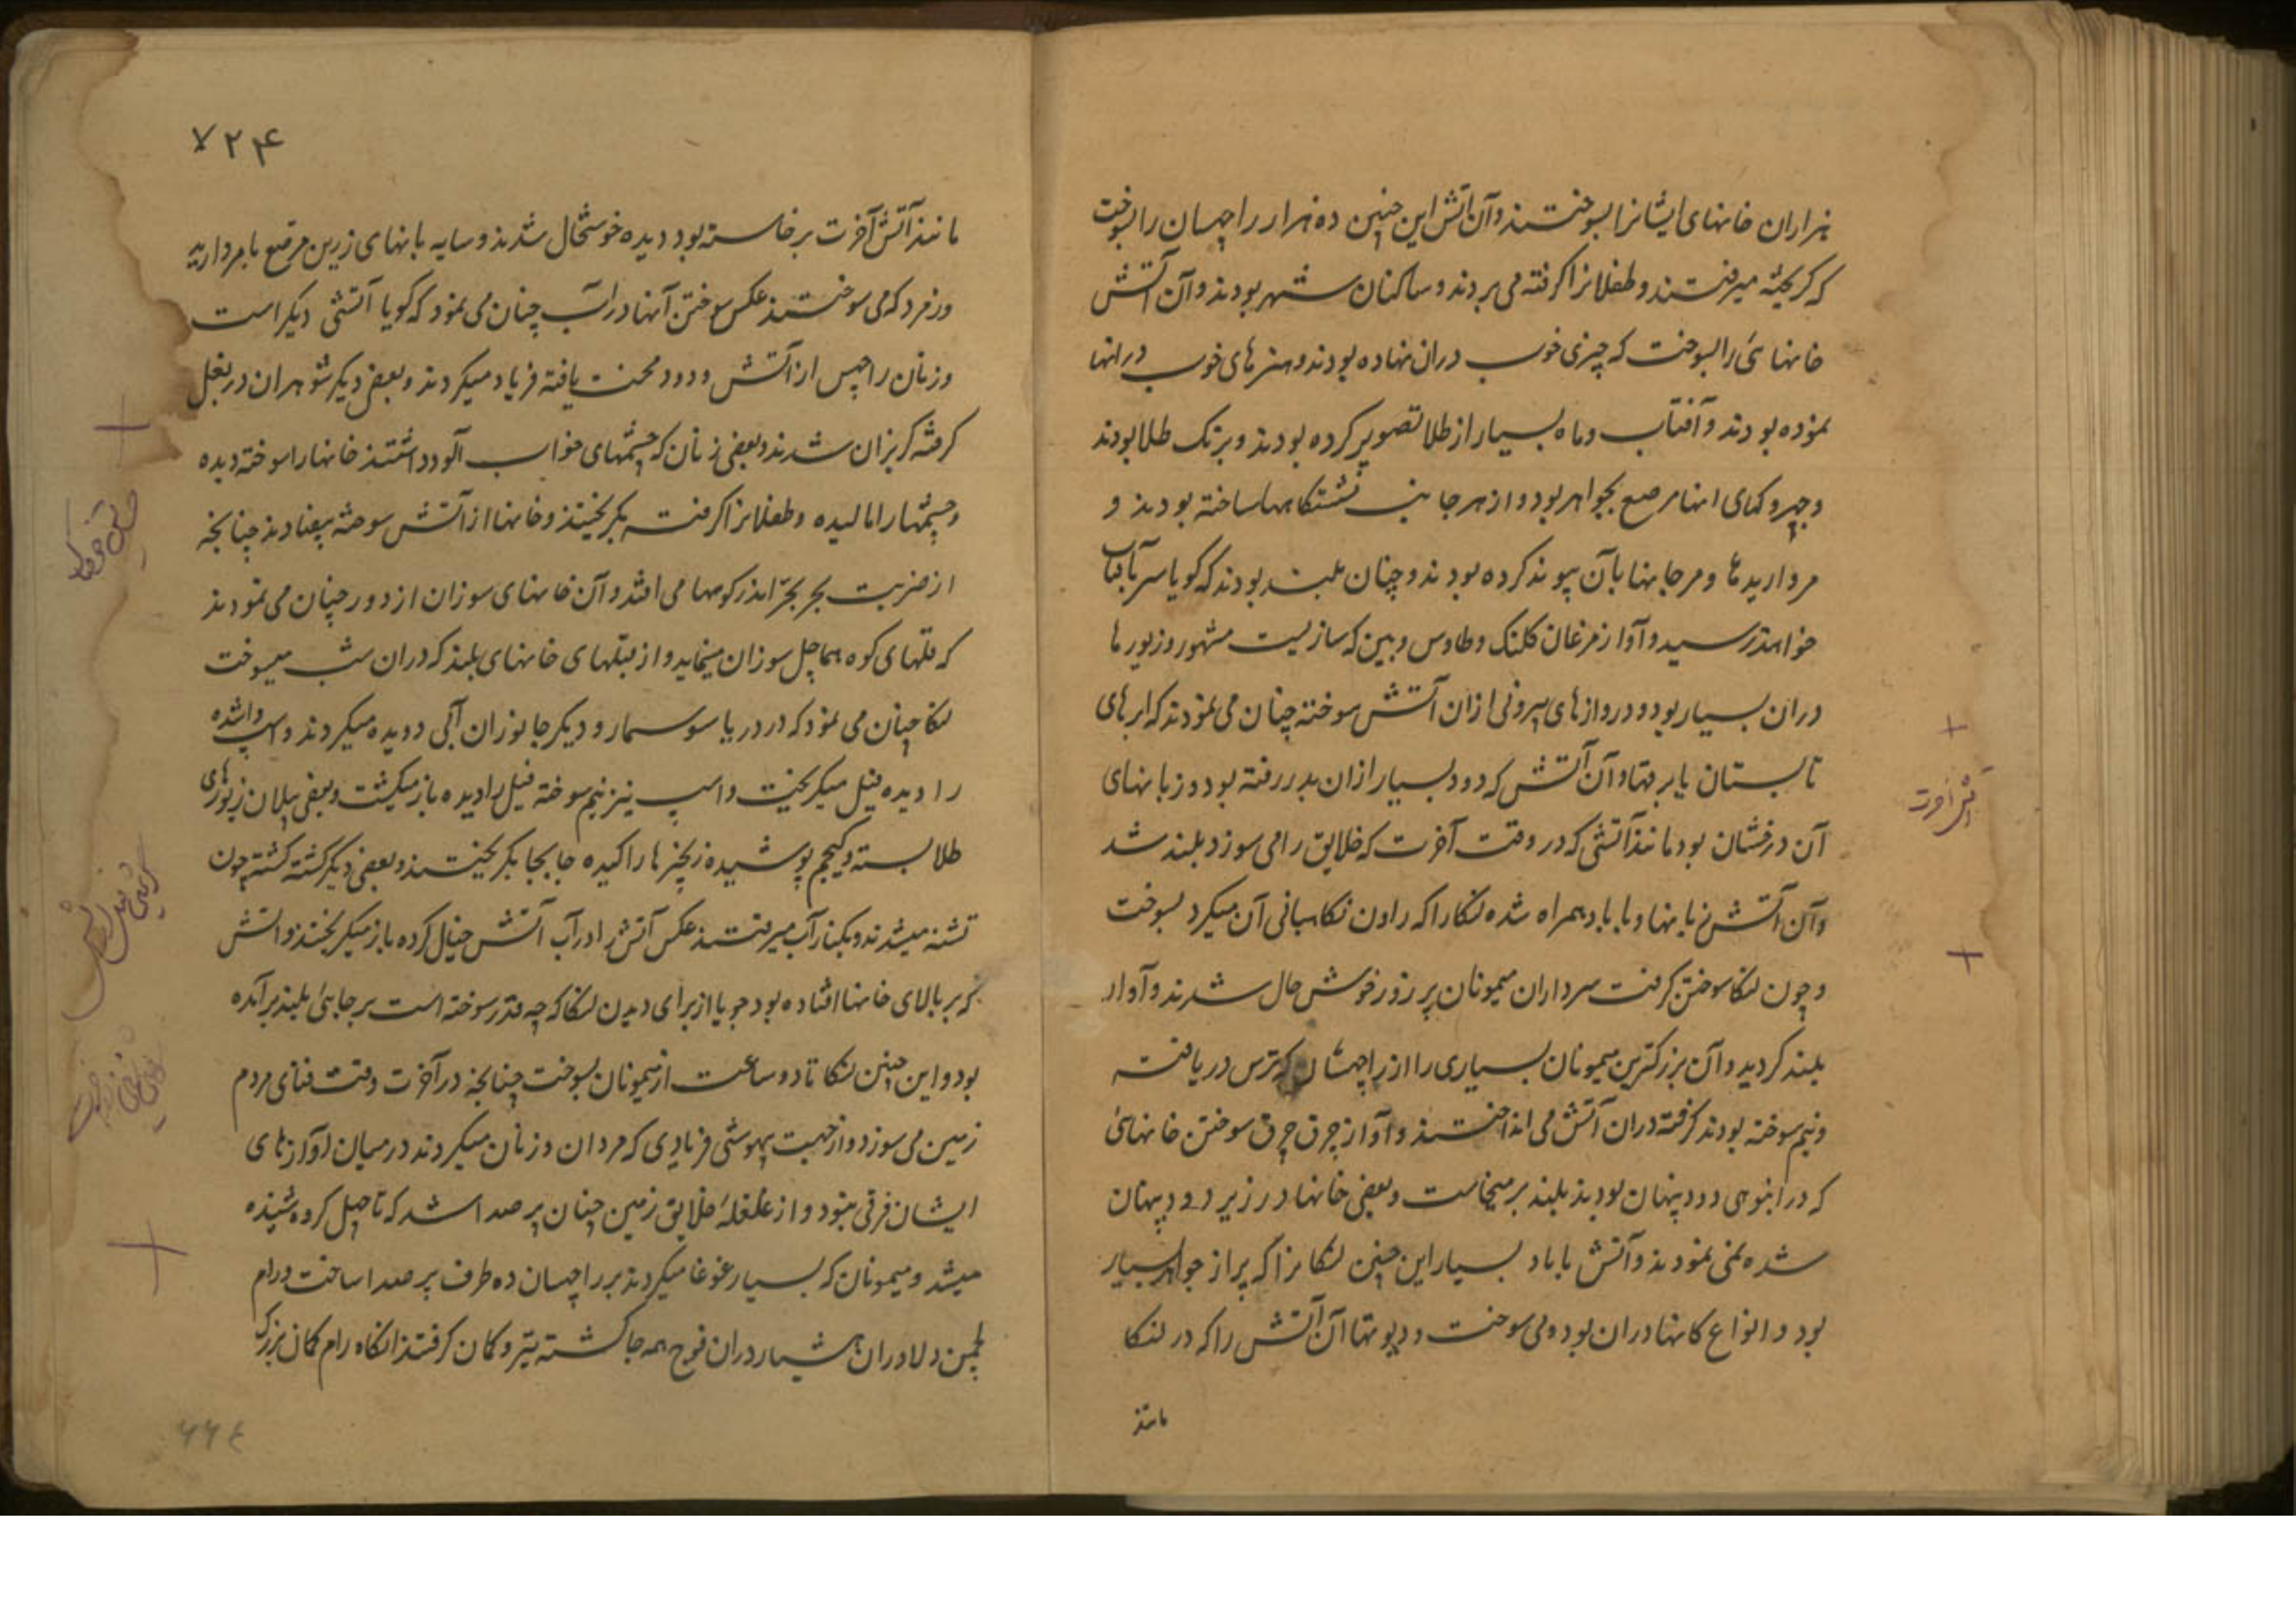 هزاران خانهای ایشانرا بسوختند و آن آتش این چنین ده هزار راچهسان را بسوخت
که گریخته میرفتند و طفلانرا گرفته می بردند و ساکنان شهر بودند و آن آتش
خانهائی را بسوخت که چیزی خوب دران نهاده بودند و هنرهای خوب درانها
نموده بودند و آفتاب و ماه بسیار از طلا تصویر کرده بودند و برنک طلا بودند
و جهروکهای انها مرصع بجواهر بود و از هر جانب نشستکاهها ساخته بودند و
مرواریدها و مرجانها بآن پیوند کرده بودند و چنان بلند بودند که کویا سر بآفتاب
خواهند رسید و آواز مرغان کلنک و طاوس و بین که سازیست مشهور و زیورها
دران بسیار بود و دروازهای بیرونی ازان آتش سوخته چنان می نمودند که ابرهای
تابستان یا برقها و آن آتش که دود بسیار ازان بدر رفته بود و زبانهای
آن درفشان بود مانند آتشی که در وقت آخرت که خلایق را می سوزد بلند شد
و آن آتش زبانها و با باد همراه شده لنکا را که راون نکاهبانی آن میکرد بسوخت
و چون لنکا سوختن کرفت سرداران میمونان پر زور خوش حال شدند و آواز
بلند کردید و آن بزرکترین میمونان بسیاری را از راچهسان که ترس دریافته
و نیم سوخته بودند کرفته دران آتش می انداختند و آواز چرق چرق سوختن خانهائی
که در انبوهی دود پنهان بودند بلند برمیخاست و بعضی خانها در زیر دود پنهان
شده نمی نمودند و آتش با باد بسیار این چنین لنکا نرا که پر از جواهر بسیار
بود و انواع کانها دران بود می سوخت و دیوتها آن آتش را که در لنکا
مانند
۷۲۴
مانند آتش آخرت برخاسته بود دیده خوشحال شدند و سایه بانهای زرین مرصع بامروارید
و زمرد که می سوختند عکس سوختن آنها در آب چنان می نمود که کویا آتشی دیکر است
و زنان راچهس از آتش و دود محنت یافته فریاد میکردند و بعضی دیکر شوهران در بغل
کرفته کریزان شدند و بعضی زنان که چشمهای خواب آلود داشتند خانها را سوخته دیده
و چشمها را مالیده و طفلانرا کرفته بکریختند و خانها از آتش سوخته بیفتادند چنانچه
از ضربت بجر بجتر اندر کوهها می افتد و آن خانهای سوزان از دور چنان می نمودند
که قلهای کوه هماچل سوزان مینماید و از قبلهای خانهای بلند که دران شب میسوخت
لنکا چنان می نمود که در دریا سوسمار و دیکر جانوران آبی دویده میکردند و اسپ واشده
را دیده فیل میکریخت و اسپ نیز نیم سوخته فیل را دیده باز میکشت و بعضی پیلان زیورهای
طلا بسته و کیجم پوشیده زنجیرها را کیده جابجا بکریختند و بعضی دیکر کشته کشته چون
تشنه میشدند و بکنار آب میرفتند عکس آتش را در آب آتش خیال کرده باز میکریختند و آتش
که بر بالای خانها افتاده بود جویا از برای دیدن لنکا که چه قدر سوخته است بر جائی بلند برآمده
بود و این چنین لنکا تا دو ساعت از میمونان بسوخت چنانچه در آخرت وقت فنای مردم
زمین می سوزد و از جهت بیهوشی فریادی که مردان و زنان میکردند درمیان آوازهای
ایشان فرقی نبود و از غلغلهٔ خلایق زمین چنان پر صدا شد که تا چهل کروه شنیده
میشد و میمونان که بسیار غوغا میکردند بر راچهسان ده طرف پر صدا ساخت و رام
لچمن دلاوران هشیار دران فوج همه جا کشته تیر و کمان کرفتند انکاه رام کمان بزرک
آتش آخرت
۶۶۴